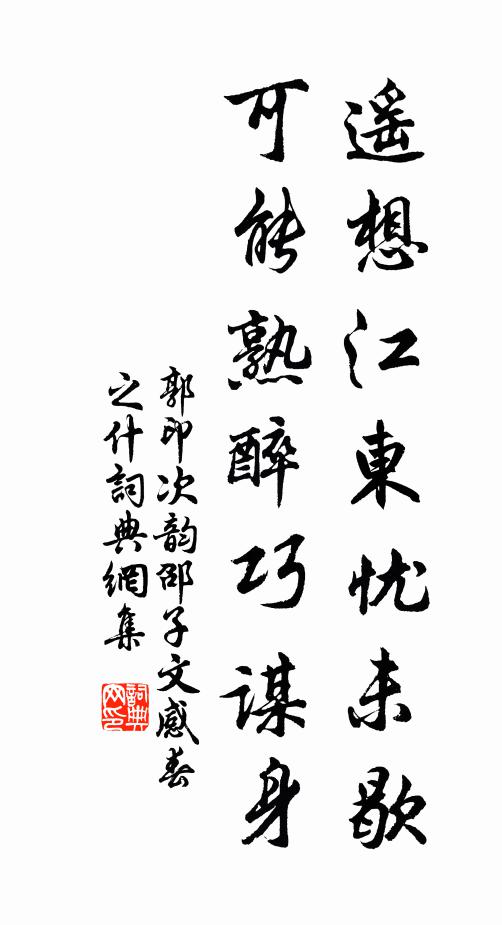 遥想江東忧未歇
可能熟醉巧谋身
郭印次韵邵子文感春
之什詞典網集
詞典
网印